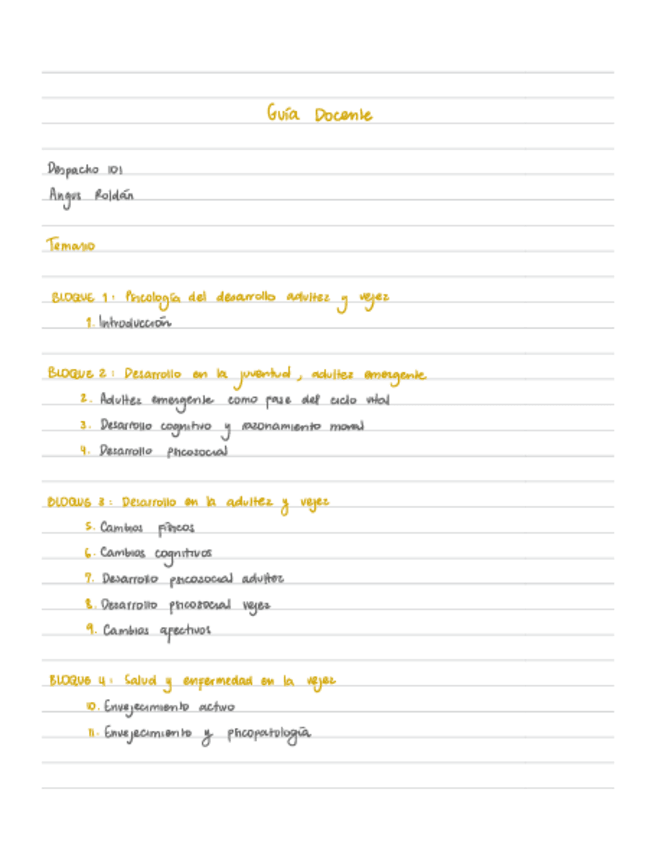 Guía Docente
Despacho 101
Angus Roldán
Temario
BLOQUE 1: Psicología del desarrollo adultez y vejez
1. Introducción
BLOQUE 2: Desarrollo en la juventud, adultez emergente
2. Adultez emergente como fase del ciclo vital
3. Desarrollo cognitivo y razonamiento moral
4. Desarrollo psicosocial
BLOQUE 3: Desarrollo en la adultez y vejez
5. Cambios físicos
6. Cambios cognitivos
7. Desarrollo psicosocial adultez
8. Desarrollo psicosocial vejez
9. Cambios afectivos
BLOQUE 4: Salud y enfermedad en la vejez
10. Envejecimiento activo
11. Envejecimiento y psicopatología